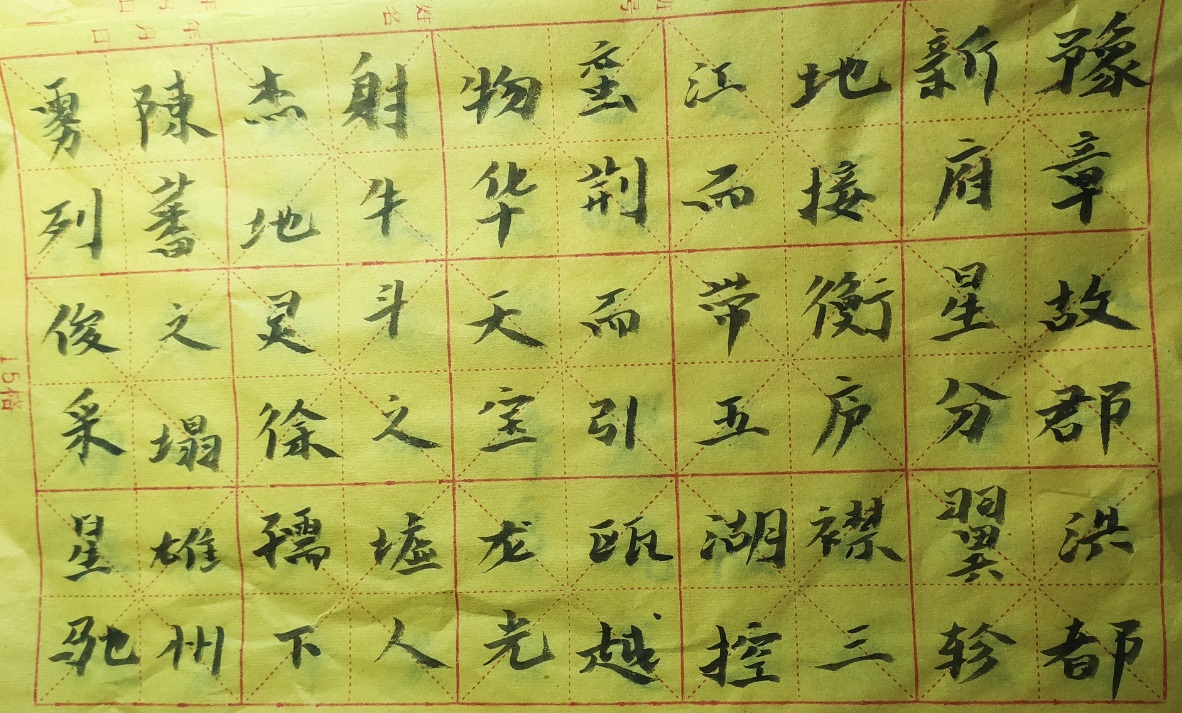 豫章故郡洪都
新府星分翼轸
地接衡庐襟三
江而带五湖控
蛮荆而引瓯越
物华天宝龙光
射牛斗之墟人
杰地灵徐孺下
陳蕃之塌雄州
雾列俊采星驰
姓名
年月日
15格